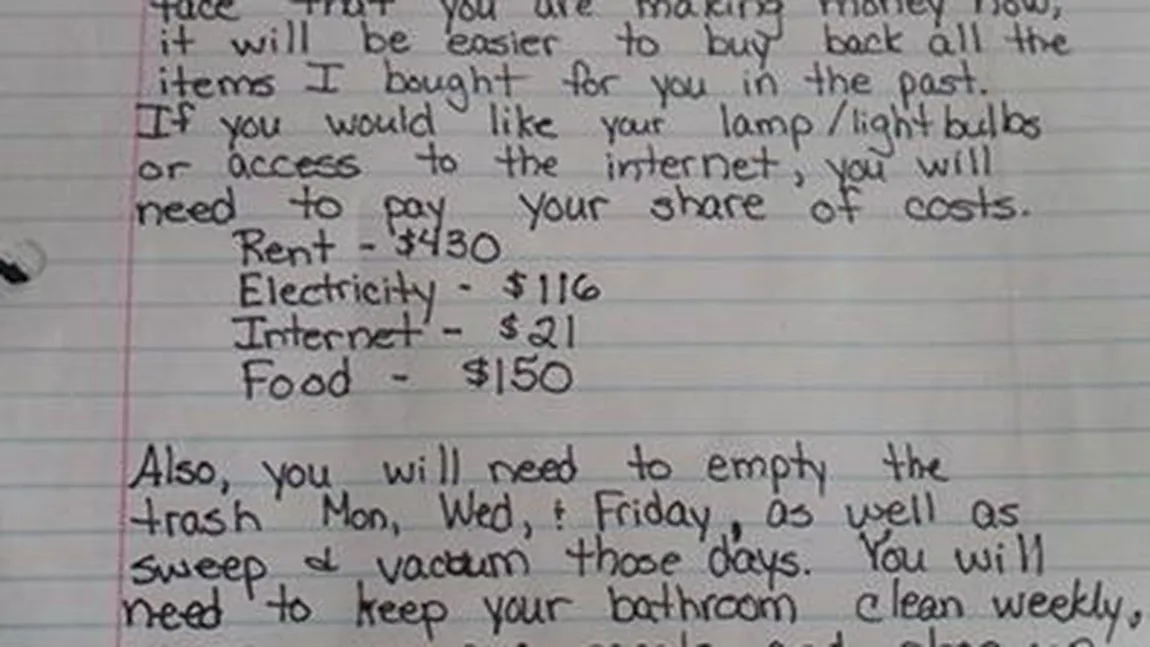 face that you are making money now,
it will be easier to buy back all the
items I bought for you in the past.
If you would like your lamp/lightbulbs
or access to the internet, you will
need to pay your share of costs.
Rent - $430
Electricity - $116
Internet - $21
Food - $150
Also, you will need to empty the
trash Mon, Wed, & Friday, as well as
sweep & vacuum those days. You will
need to keep your bathroom clean weekly,